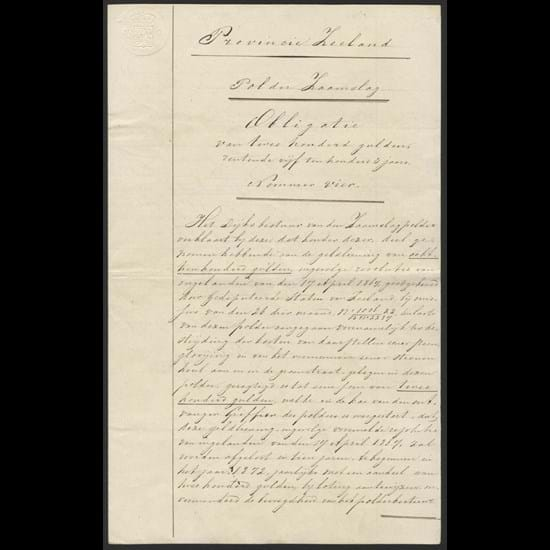 Provincie Zeeland
Polder Zaamslag
Obligatie
van twee honderd gulden,
rentende vijf ten honderd 's jaars
Nommer vier.
Het Dijksbestuur van den Zaamslagpolder
verklaart bij deze dat houder dezer, deel ge-
nomen hebbende aan de geldleening van acht-
tienhonderd gulden, ingevolge resolutie van
ingelanden van den 17 April 1867, goedgekeurd
door Gedeputeerde Staten van Zeeland, bij
van den 26 dier maand, N°
van dezen polder aangegaan voornamelijk ter be-
strijding der kosten van daarstellen eener
en van het vernieuwen eener steenen
aan en in de gelegen in dezen
polder, geregtigd is tot eene som van twee
honderd gulden, welke in de kas van den ont-
vanger Griffier des polders is overgestort, dat
deze geldleening, ingevolge vermelde resolutie
van ingelanden van den 17 April 1867, zal
worden afgelost in tien jaren, te beginnen in
het jaar 1872, jaarlijks met een aandeel van
twee honderd gulden, bij loting aan te wijzen, on-
verminderd de bevoegdheid van het polderbestuur